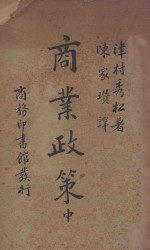 津村秀松著
陳家瓚譯
商業政策中
商務印書館發行